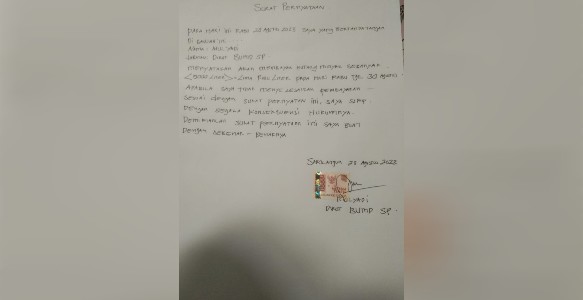 SURAT PERNYATAAN
PADA HARI INI RABU 23 AGTU 2023 SAYA YANG BERTANDATANGAN
DI BAWAH INI
NAMA : MULYADI
JABATAN : DIRUT BUMD SP.
MENYATAKAN AKAN HUTANG SEBANYAK
LIMA PADA HARI RABU TGL 30 AGUSTUS
APABILA SAYA TIDAK MENYELESAIKAN PEMBAYARAN
SESUAI DENGAN SURAT PERNYATAAN INI, SAYA SIAP
DENGAN SEGALA KONSEKUENSI HUKUMNYA.
DEMIKIANLAH SURAT PERNYATAAN INI SAYA BUAT
DENGAN SEBENAR-BENARNYA
23 AGUSTUS 2023
MULYADI
DIRUT BUMD SP.